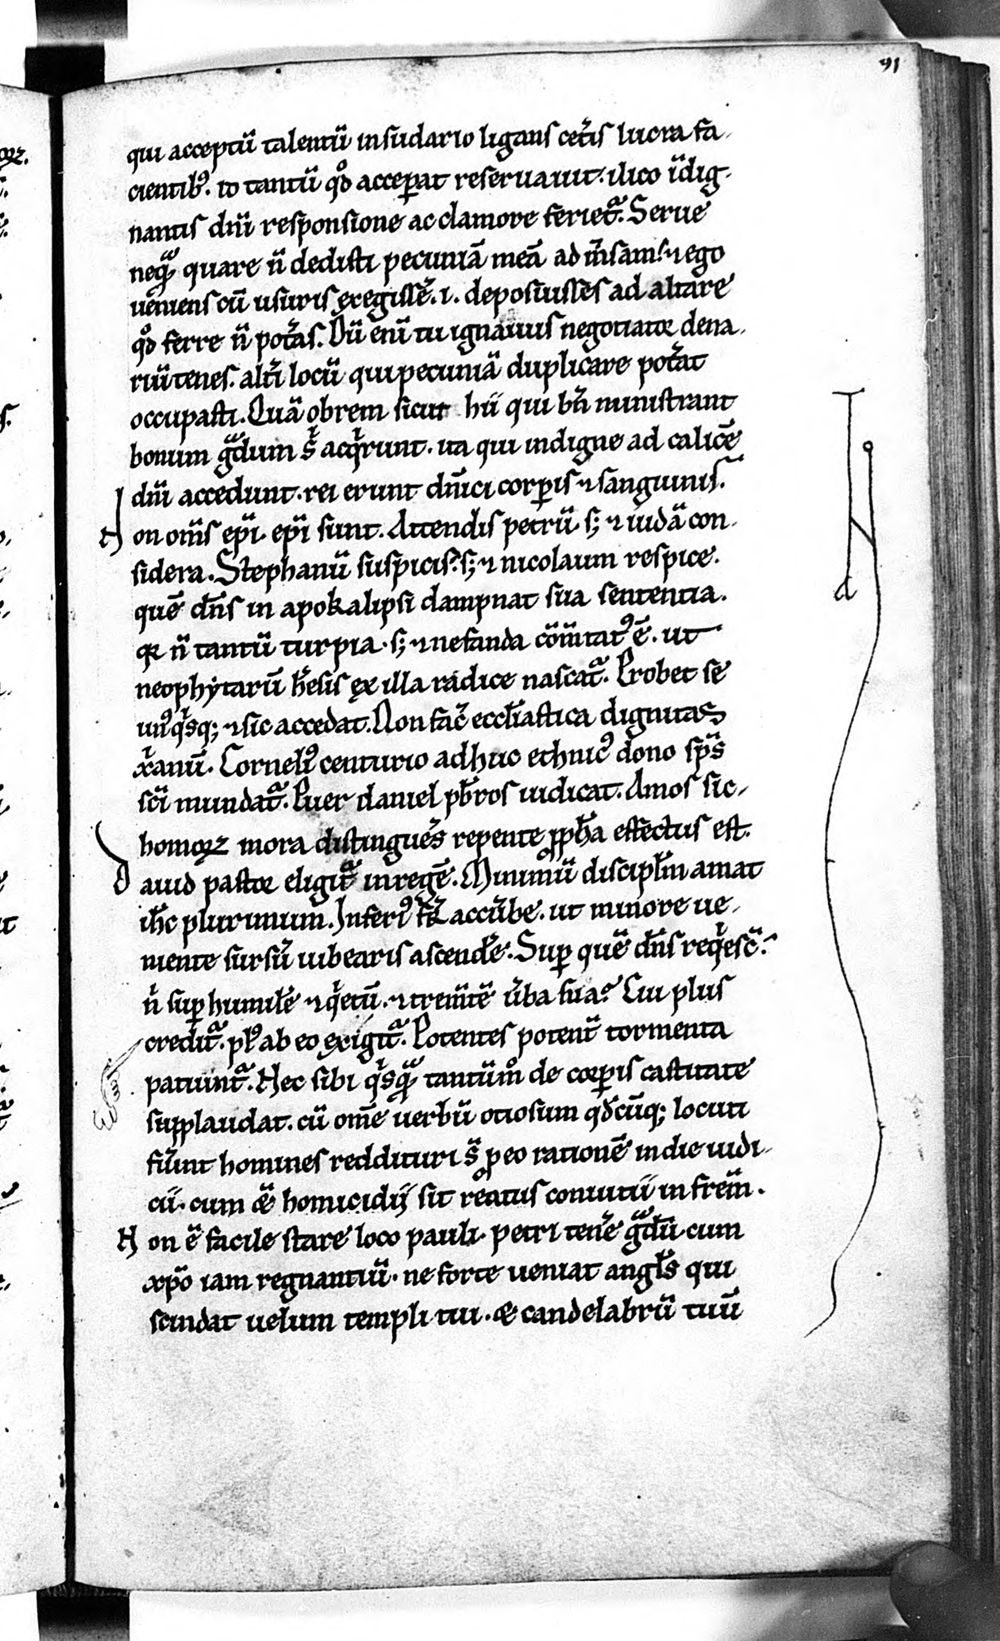 91
qui acceptū talentū in sudario ligans cet̄is lucra fa
cientib9. id tantū qđ acceperat reseruauit. ilico īdig
nantis dn̄i responsione ac clamore feriet̄. Serue
neq̄ quare n̄ dedisti pecuniā meā ad m̄sam. ⁊ ego
ueniens cū usuris exegissē. i. deposuisses ad altare
qđ ferre n̄ pot̄as. Dū enī tu ignauus negotiator dena
riū tenes. alt̄i locū qui pecuniā duplicare pot̄at
occupasti. Quā obrem sicut hii qui bn̄ ministrant
bonum g̃dum s̄ acq̇runt. ita qui indigne ad calicē
dn̄i accedunt. rei erunt dn̄ici corp̄is ⁊ sanguinis.
N on om̄s ep̄i. ep̄i sunt. Attendis petrū s; ⁊ iudā con
sidera. Stephanū suspicis. s; ⁊ nicolaum respice.
quē dn̄s in apokalipsi dampnat sua sententia.
qr n̄ tantū turpia. s; ⁊ nefanda cōm̄tat9 ē. ut
neophytarū h̄esis ex illa radice nascat̄. Probet se
un9q̇sq; ⁊ sic accedat. Non fac̄ eccl̄iastica dignitas
xr̄anū. Corneli9 centurio adhuc ethnic9 dono sp̄s
sc̄i mundat̄. Puer daniel pb̄ros iudicat. Amos sic
homoꝝ mora distingues repente ꝓph̄a effectus est.
D auid pastor eligit̄ in regē. Minimū discipl̄m amat
ih̄c plurimum. Inferi9 fr̄ accūbe. ut minore ue
niente sursū iubearis ascend̄e. Suꝑ quē dn̄s req̇esc̄.
n̄ suꝑ humilē ⁊ q̇etū. ⁊ trem̄tē ūba sua. Cui plus
credit̄. pl9 ab eo exigit̄. Potentes potent̄ tormenta
patiunt̄. Nec sibi q̇sq̄ tantūm̊ de corp̄is castitate
supplaudat. cū om̄e uerbū otiosum qđcūq; locuti
fūint homines reddituri s̄ ꝓ eo rationē in die iudi
cii. cum &̄ homicidij sit reatus conuitii in fr̄em.
N on ē facile stare loco pauli. petri tenē g̃dū. cum
xp̄o iam regnantiū. ne forte ueniat angl̄s qui
scindat uelum templi tui. & candelabrū tuū
d